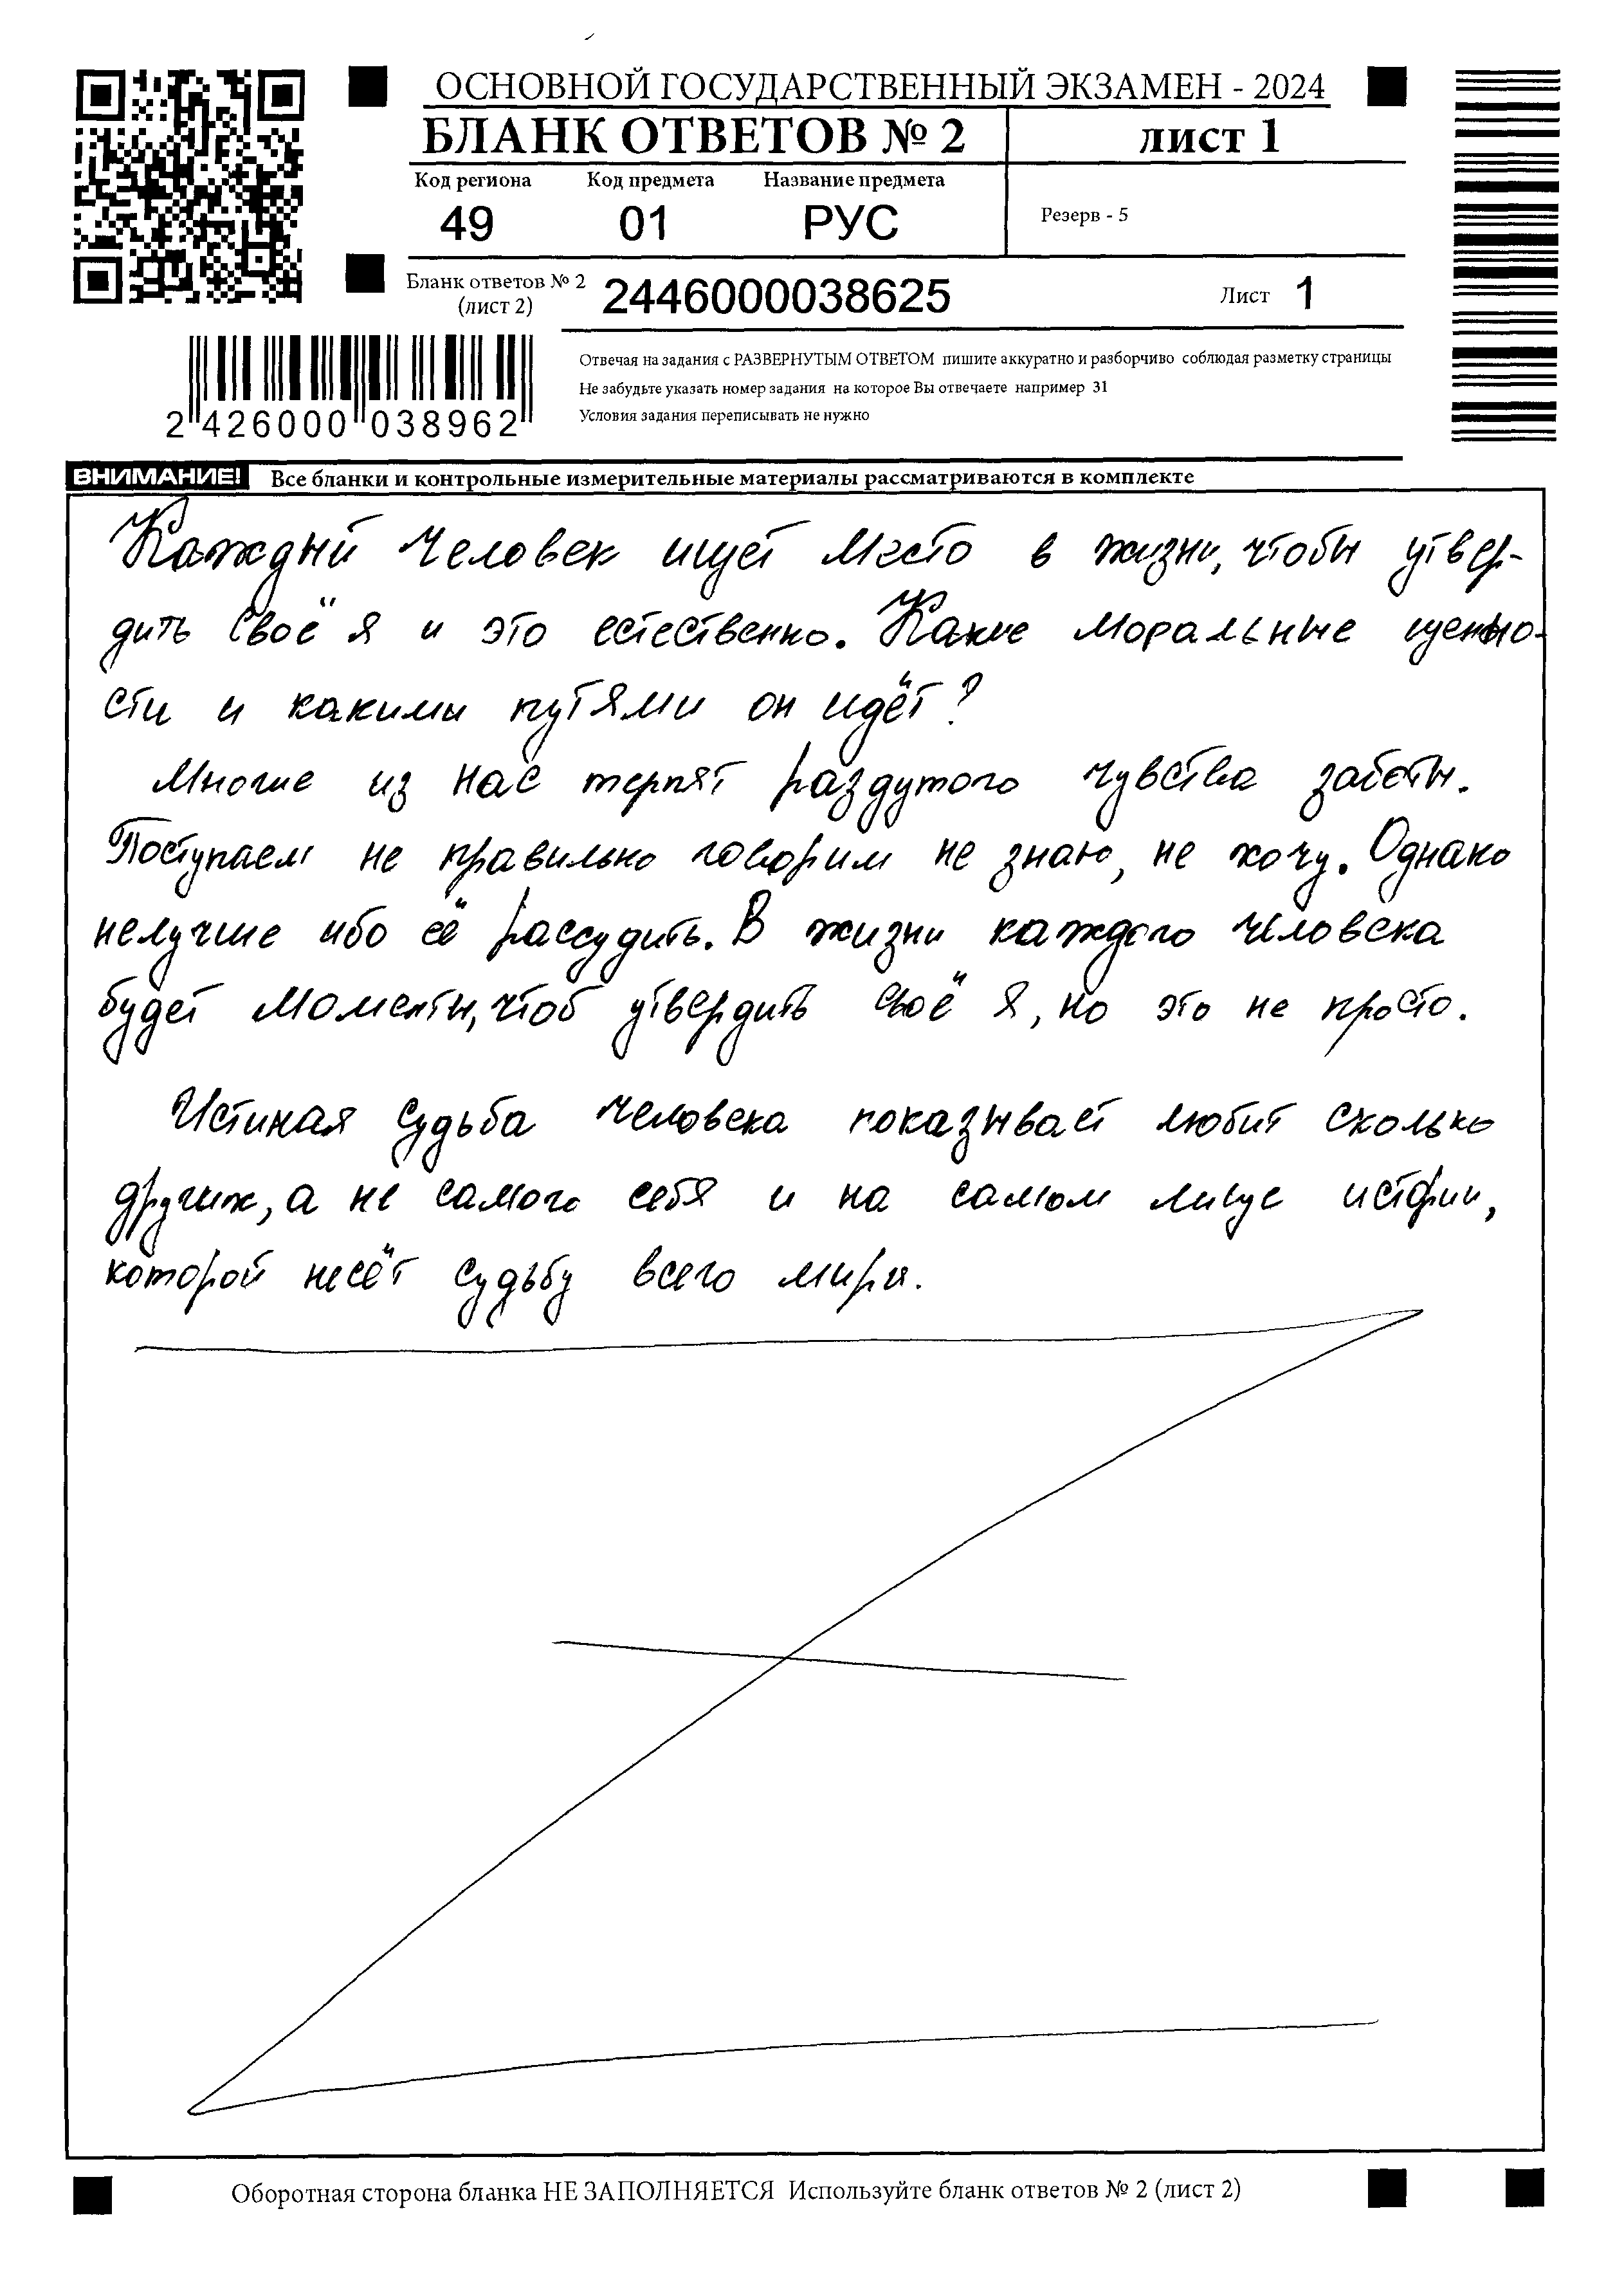 ОСНОВНОЙ ГОСУДАРСТВЕННЫЙ ЭКЗАМЕН - 2024
БЛАНК ОТВЕТОВ № 2
лист 1
Код региона Код предмета Название предмета
49 01 РУС
Резерв - 5
Бланк ответов № 2
(лист 2)
2446000038625
Лист 1
Отвечая на задания с РАЗВЕРНУТЫМ ОТВЕТОМ пишите аккуратно и разборчиво соблюдая разметку страницы
Не забудьте указать номер задания на которое Вы отвечаете например 31
Условия задания переписывать не нужно
2 426000 038962
ВНИМАНИЕ! Все бланки и контрольные измерительные материалы рассматриваются в комплекте
Каждый человек ищет место в жизни, чтобы утвер-
дить своё я и это естественно. Какие моральные ценно-
сти и какими путями он идёт?
Многие из нас терпят раздутого чувства заботы.
Поступаем не правильно говорим не знаю, не хочу. Однако
нелучше ибо её рассудить. В жизни каждого человека
будет моменты, чтоб утвердить своё я, но это не просто.
Истиная судьба человека показывает любит сколько
других, а не самого себя и на самом лице истории,
которой несёт судьбу всего мира.
Оборотная сторона бланка НЕ ЗАПОЛНЯЕТСЯ Используйте бланк ответов № 2 (лист 2)